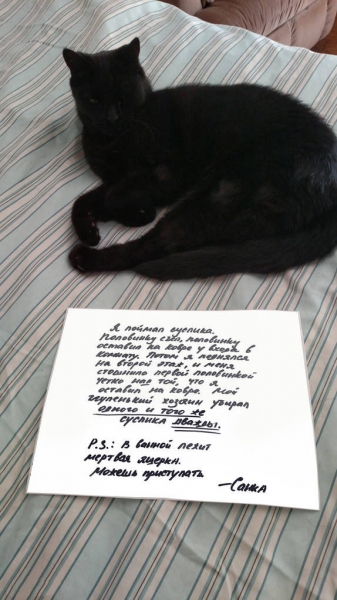 Я поймал суслика.
Половинку съел, половинку
оставил на ковре у входа в
комнату. Потом я поднялся
на второй этаж, и меня
стошнило первой половинкой
чётко над той, что я
оставил на ковре. Мой
глупенький хозяин убирал
одного и того же
суслика дважды.
P.S.: В ванной лежит
мертвая ящерка.
Можешь приступать.
—Санка